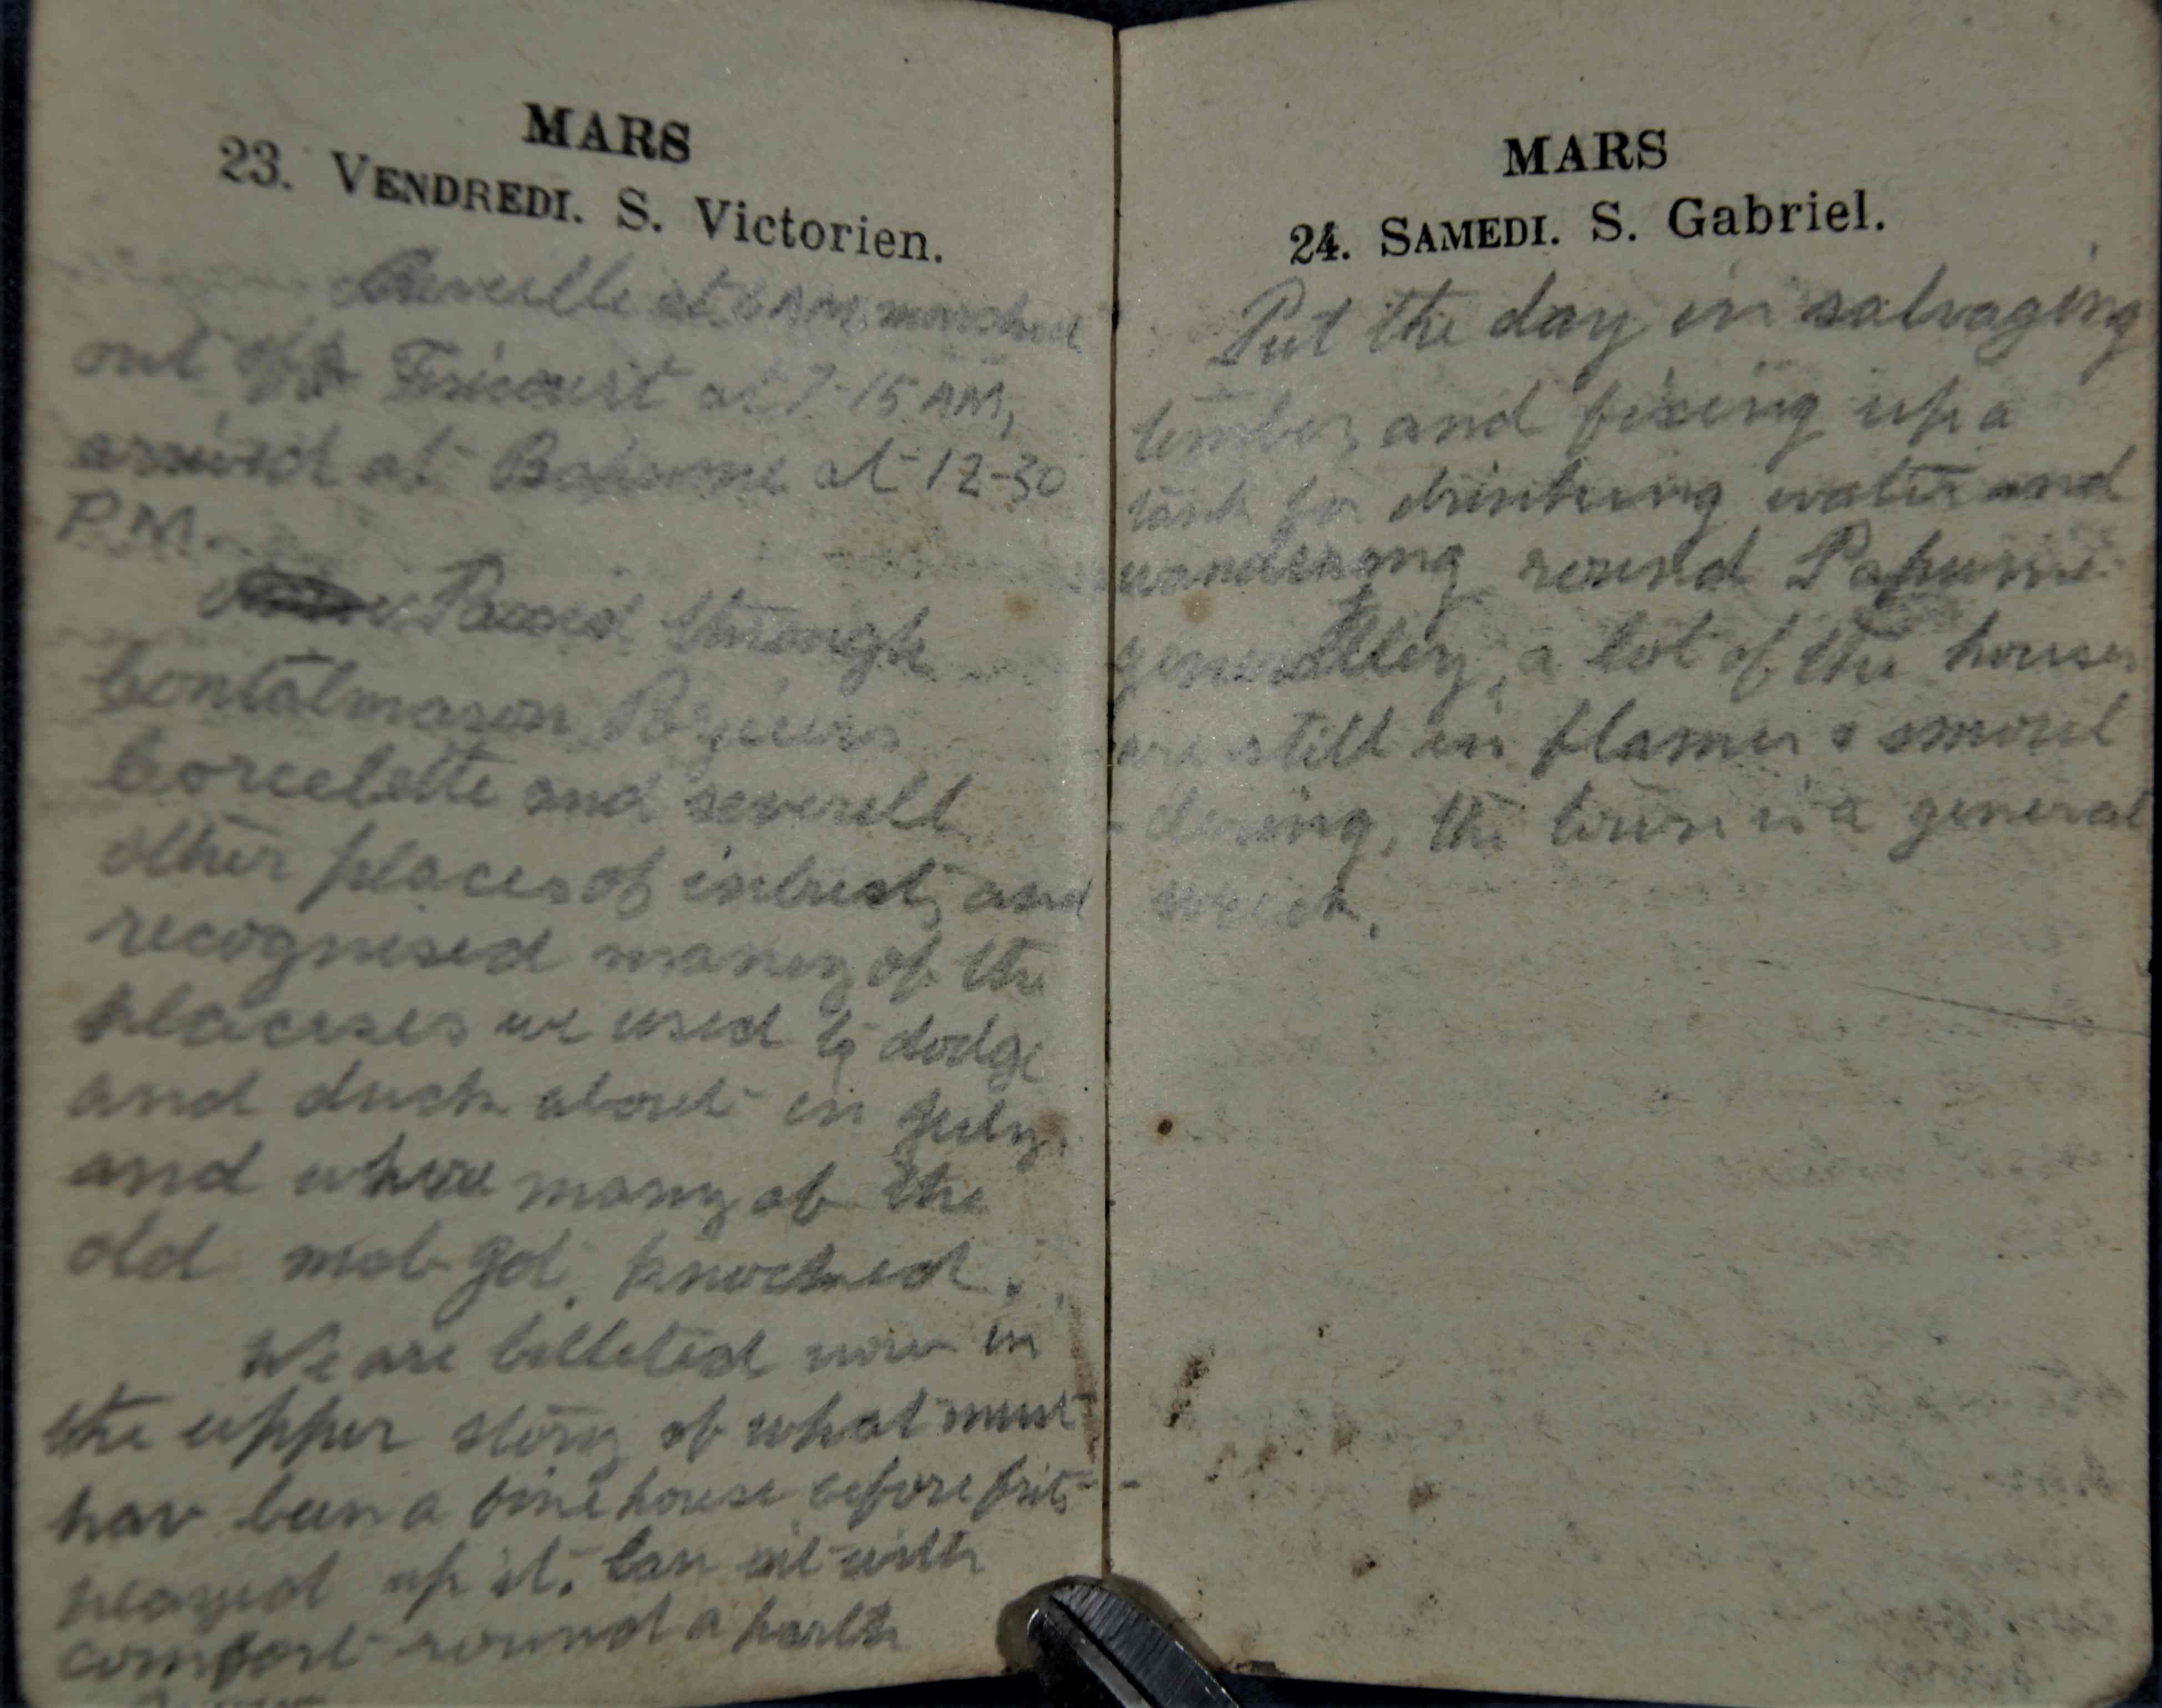 MARS
23. VENDREDI. S. Victorien.
Reveille at 6 AM marched
out of Fricourt at 7-15 AM,
arrived at Bapaume at 12-30
P.M.
Passed through
Contalmason Pozieres
Corcelette and severell
other places of intrest, and
recognised maney of the
placeses we used to dodge
and duck about in July.
and where many of the
old mob got knocked.
We are billeted now in
the upper story of what must
hav been a fine house before fritz
up it. Can sit with
comfort round a harlth
MARS
24. SAMEDI. S. Gabriel.
Put the day in salvaging
timber, and fixing up a
tank for drinking water and
wandering round Papume
generalley, a lot of the houses
are still in flames & smoul
-dering, the town is a general
wreck.